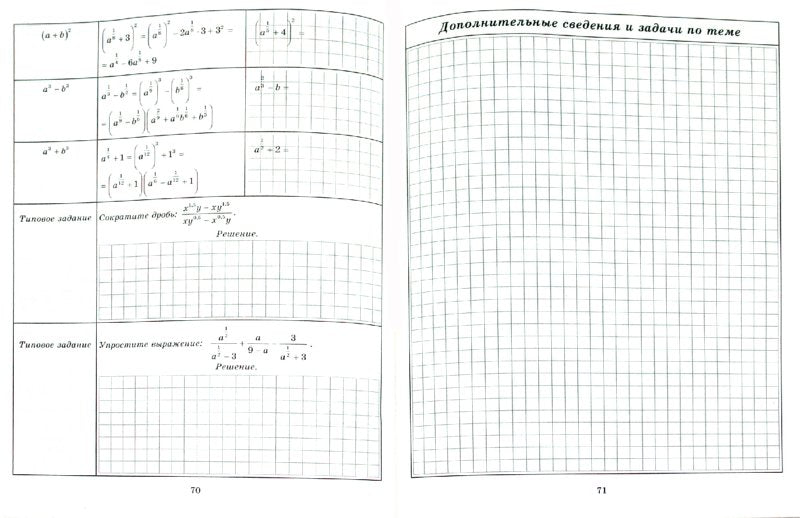 (a + b)²
(a^{1/8} + 3)² = (a^{1/8})² − 2a^{1/8} · 3 + 3² =
= a^{1/4} − 6a^{1/8} + 9
(a^{1/5} + 4)² =
a³ − b³
= (a^{1/9} − b^{1/6})(a^{2/9} + a^{1/9}b^{1/6} + b^{1/3})
− b =
a³ + b³
+ 1 = (a^{1/12}) + 1³ =
= (a^{1/12} + 1)(a^{1/6} − a^{1/12} + 1)
+ 2 =
Типовое задание
Сократите дробь: (x^{1,5}y − xy^{1,5}) / (xy^{0,5} − x^{0,5}y).
Решение.
Типовое задание
Упростите выражение: a^{1/2} / (a^{1/2} − 3) + a / (9 − a) − 3 / (a^{1/2} + 3).
Решение.
70
Дополнительные сведения и задачи по теме
71